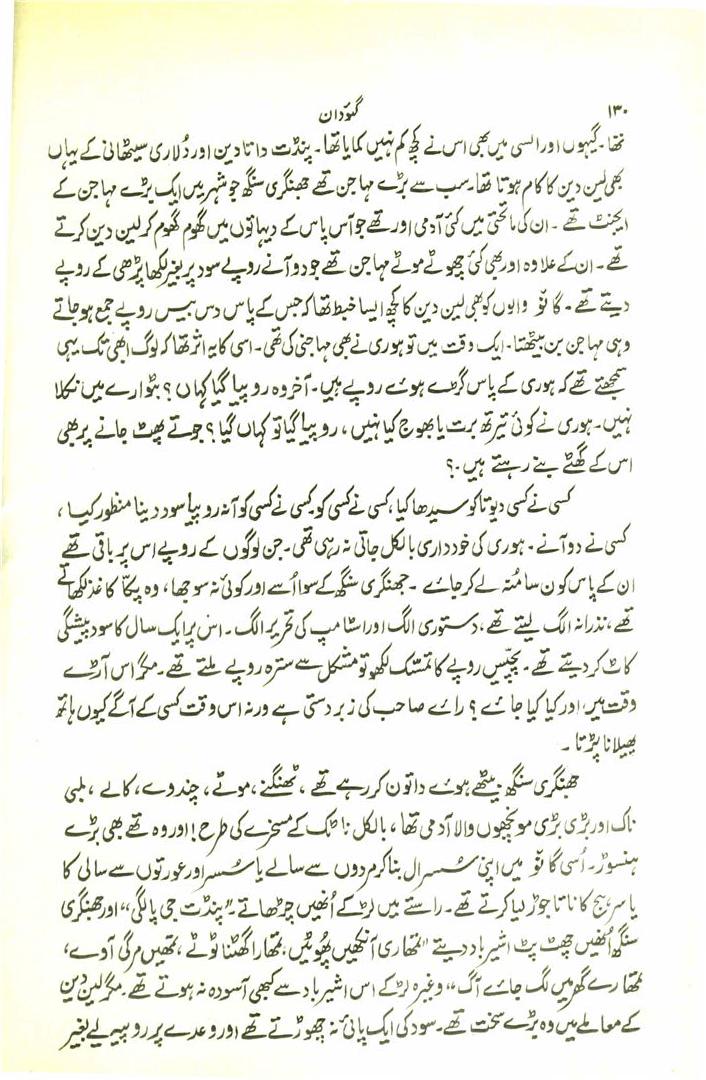 ۱۳۰
گئودان
تھا۔ گیہوں اور السی میں بھی اس نے کچھ کم نہیں کمایا تھا۔ پنڈت داتا دین اور دُلاری سیٹھانی کے یہاں
بھی لین دین کا کام ہوتا تھا۔ سب سے بڑے مہاجن تھے جھنگری سنگھ جو شہر میں ایک بڑے مہاجن کے
ایجنٹ تھے ۔ ان کی ماتحتی میں کئی آدمی اور تھے جو آس پاس کے دیہاتوں میں گھوم گھوم کر لین دین کرتے
تھے ۔ ان کے علاوہ اور بھی کئی چھوٹے موٹے مہاجن تھے جو دو آنے روپے سود پر بغیر لکھا پڑھی کے روپے
دیتے تھے ۔ گانو والوں کو بھی لین دین کا کچھ ایسا خبط تھا کہ جس کے پاس دس بیس روپے جمع ہو جاتے
وہی مہاجن بن بیٹھتا۔ ایک وقت میں تو ہوری نے بھی مہاجنی کی تھی۔ اسی کا یہ اثر تھا کہ لوگ ابھی تک یہی
سمجھتے تھے کہ ہوری کے پاس گڑے ہوئے روپے ہیں۔ آخر وہ روپیا گیا کہاں ؟ بٹوارے میں نکلا
نہیں۔ ہوری نے کوئی تیرتھ برت یا بھوج کیا نہیں ، روپیا گیا تو کہاں گیا ؟ جوتے پھٹ جانے پر بھی
اس کے گھٹے بنے رہتے ہیں ۔؟
کسی نے کسی دیوتا کو سیدھا کیا، کسی نے کسی کو۔ کسی نے کسی کو آنہ روپیا سود دینا منظور کیا ،
کسی نے دو آنے ۔ ہوری کی خودداری بالکل جاتی نہ رہی تھی ۔ جن لوگوں کے روپے اس پر باقی تھے
ان کے پاس کون سا منُہ لے کر جائے ۔ جھنگری سنگھ کے سوا اُسے اور کوئی نہ سوجھا ، وہ پکّا کاغذ لکھاتے
تھے ، نذرانہ الگ لیتے تھے ، دستوری الگ اور اسٹامپ کی تحریر الگ ۔ اس پر ایک سال کا سود پیشگی
کاٹ کر دیتے تھے ۔ پچیس روپے کا تمسّک لکھو تو مشکل سے سترہ روپے ملتے تھے ۔ مگر اس آڑے
وقت میں اور کیا کیا جائے ؟ رائے صاحب کی زبردستی ہے ورنہ اس وقت کسی کے آگے کیوں ہاتھ
پھیلانا پڑتا ۔
جھنگری سنگھ بیٹھے ہوئے داتون کر رہے تھے ، ٹھنگنے ، موٹے ، چندوے ، کالے ، لمبی
ناک اور بڑی بڑی مونچھوں والا آدمی تھا ، بالکل ناٹک کے مسخرے کی طرح ! اور وہ تھے بھی بڑے
ہنسوڑ۔ اُسی گانو میں اپنی سُسرال بنا کر مردوں سے سالے یا سُسر اور عورتوں سے سالی کا
یا سرہج کا ناتا جوڑ لیا کرتے تھے ۔ راستے میں لڑکے اُنھیں چڑھاتے ۔" پنڈت جی پالگی"، اور جھنگری
سنگھ اُنھیں چھٹ پٹ اشیرباد دیتے "تمھاری آنکھیں پھُوٹیں، تمھارا گھٹنا ٹوٹے ، تمھیں مرگی آوے ،
تمھارے گھر میں لگ جائے آگ" وغیرہ لڑکے اس اشیرباد سے کبھی آسودہ نہ ہوتے تھے ۔ مگر لین دین
کے معاملے میں وہ بڑے سخت تھے ۔ سود کی ایک پائی نہ چھوڑتے تھے اور وعدے پر روپیے لیے بغیر